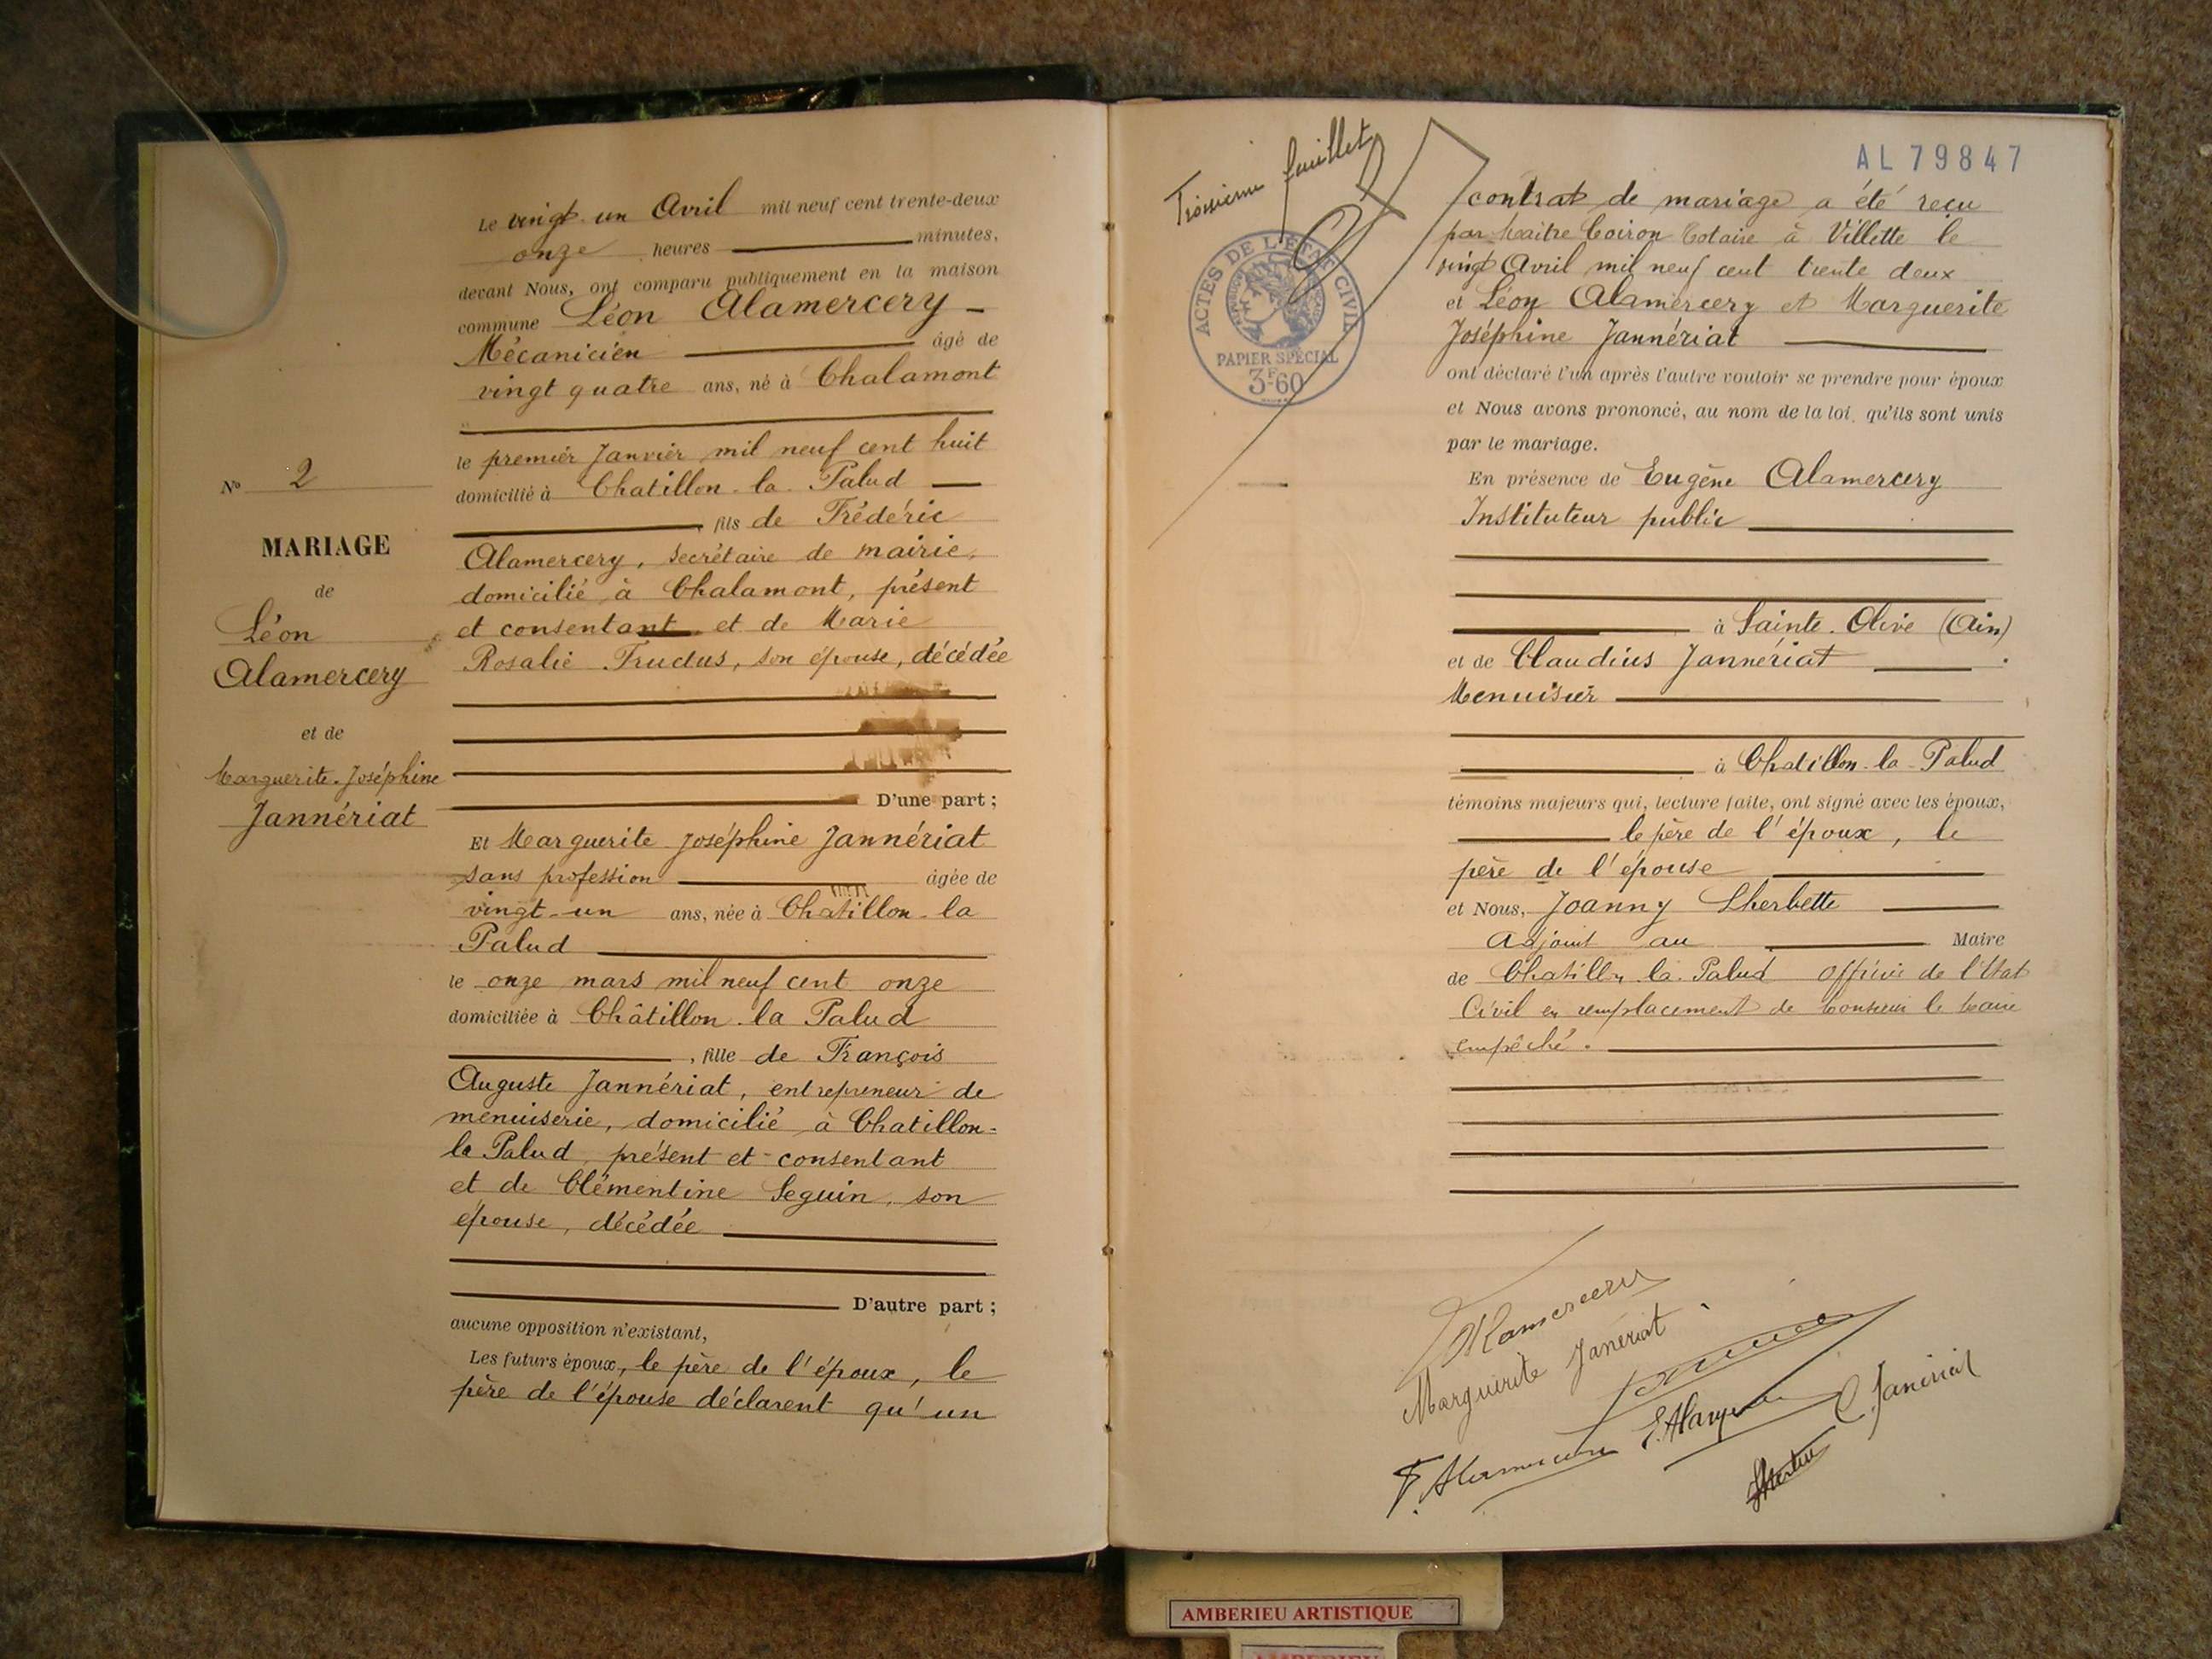 Le vingt un Avril mil neuf cent trente-deux
onze heures minutes,
devant Nous, ont comparu publiquement en la maison
commune Léon Alamercery
Mécanicien âgé de
vingt quatre ans, né à Chalamont
le premier Janvier mil neuf cent huit
domicilié à Chatillon-la-Palud
, fils de Frédéric
Alamercery, secrétaire de mairie,
domicilié à Chalamont, présent
et consentant et de Marie
Rosalie Fructus, son épouse, décédée
D'une part ;
N° 2
MARIAGE
de
Léon
Alamercery
et de
Marguerite-Joséphine
Jannériat
Et Marguerite Joséphine Jannériat
sans profession âgée de
vingt-un ans, née à Chatillon-la
Palud
le onze mars mil neuf cent onze
domiciliée à Châtillon-la Palud
, fille de François
Auguste Jannériat, entrepreneur de
menuiserie, domicilié à Chatillon-
la Palud, présent et consentant
et de Clémentine Seguin, son
épouse, décédée
D'autre part ;
aucune opposition n'existant,
Les futurs époux, le père de l'époux, le
père de l'épouse déclarent qu'un
Troisième feuillet
AL79847
ACTES DE L'ÉTAT CIVIL
PAPIER SPÉCIAL
3F60
contrat de mariage a été reçu
par Maître Coiron Notaire à Villette le
vingt Avril mil neuf cent trente deux
et Léon Alamercery et Marguerite
Joséphine Jannériat
ont déclaré l'un après l'autre vouloir se prendre pour époux
et Nous avons prononcé, au nom de la loi, qu'ils sont unis
par le mariage.
En présence de Eugène Alamercery
Instituteur public
à Sainte-Olive (Ain)
et de Claudius Jannériat
Menuisier
à Chatillon-la-Palud
témoins majeurs qui, lecture faite, ont signé avec les époux,
le père de l'époux, le
père de l'épouse
et Nous, Joanny Lherbette
Adjoint au Maire
de Chatillon la Palud officier de l'Etat
Civil en remplacement de Monsieur le Maire
empêché.
Alamercery
Marguerite Janériat
F. Alamercery
C. Janériat
AMBERIEU ARTISTIQUE
AMBERIEU